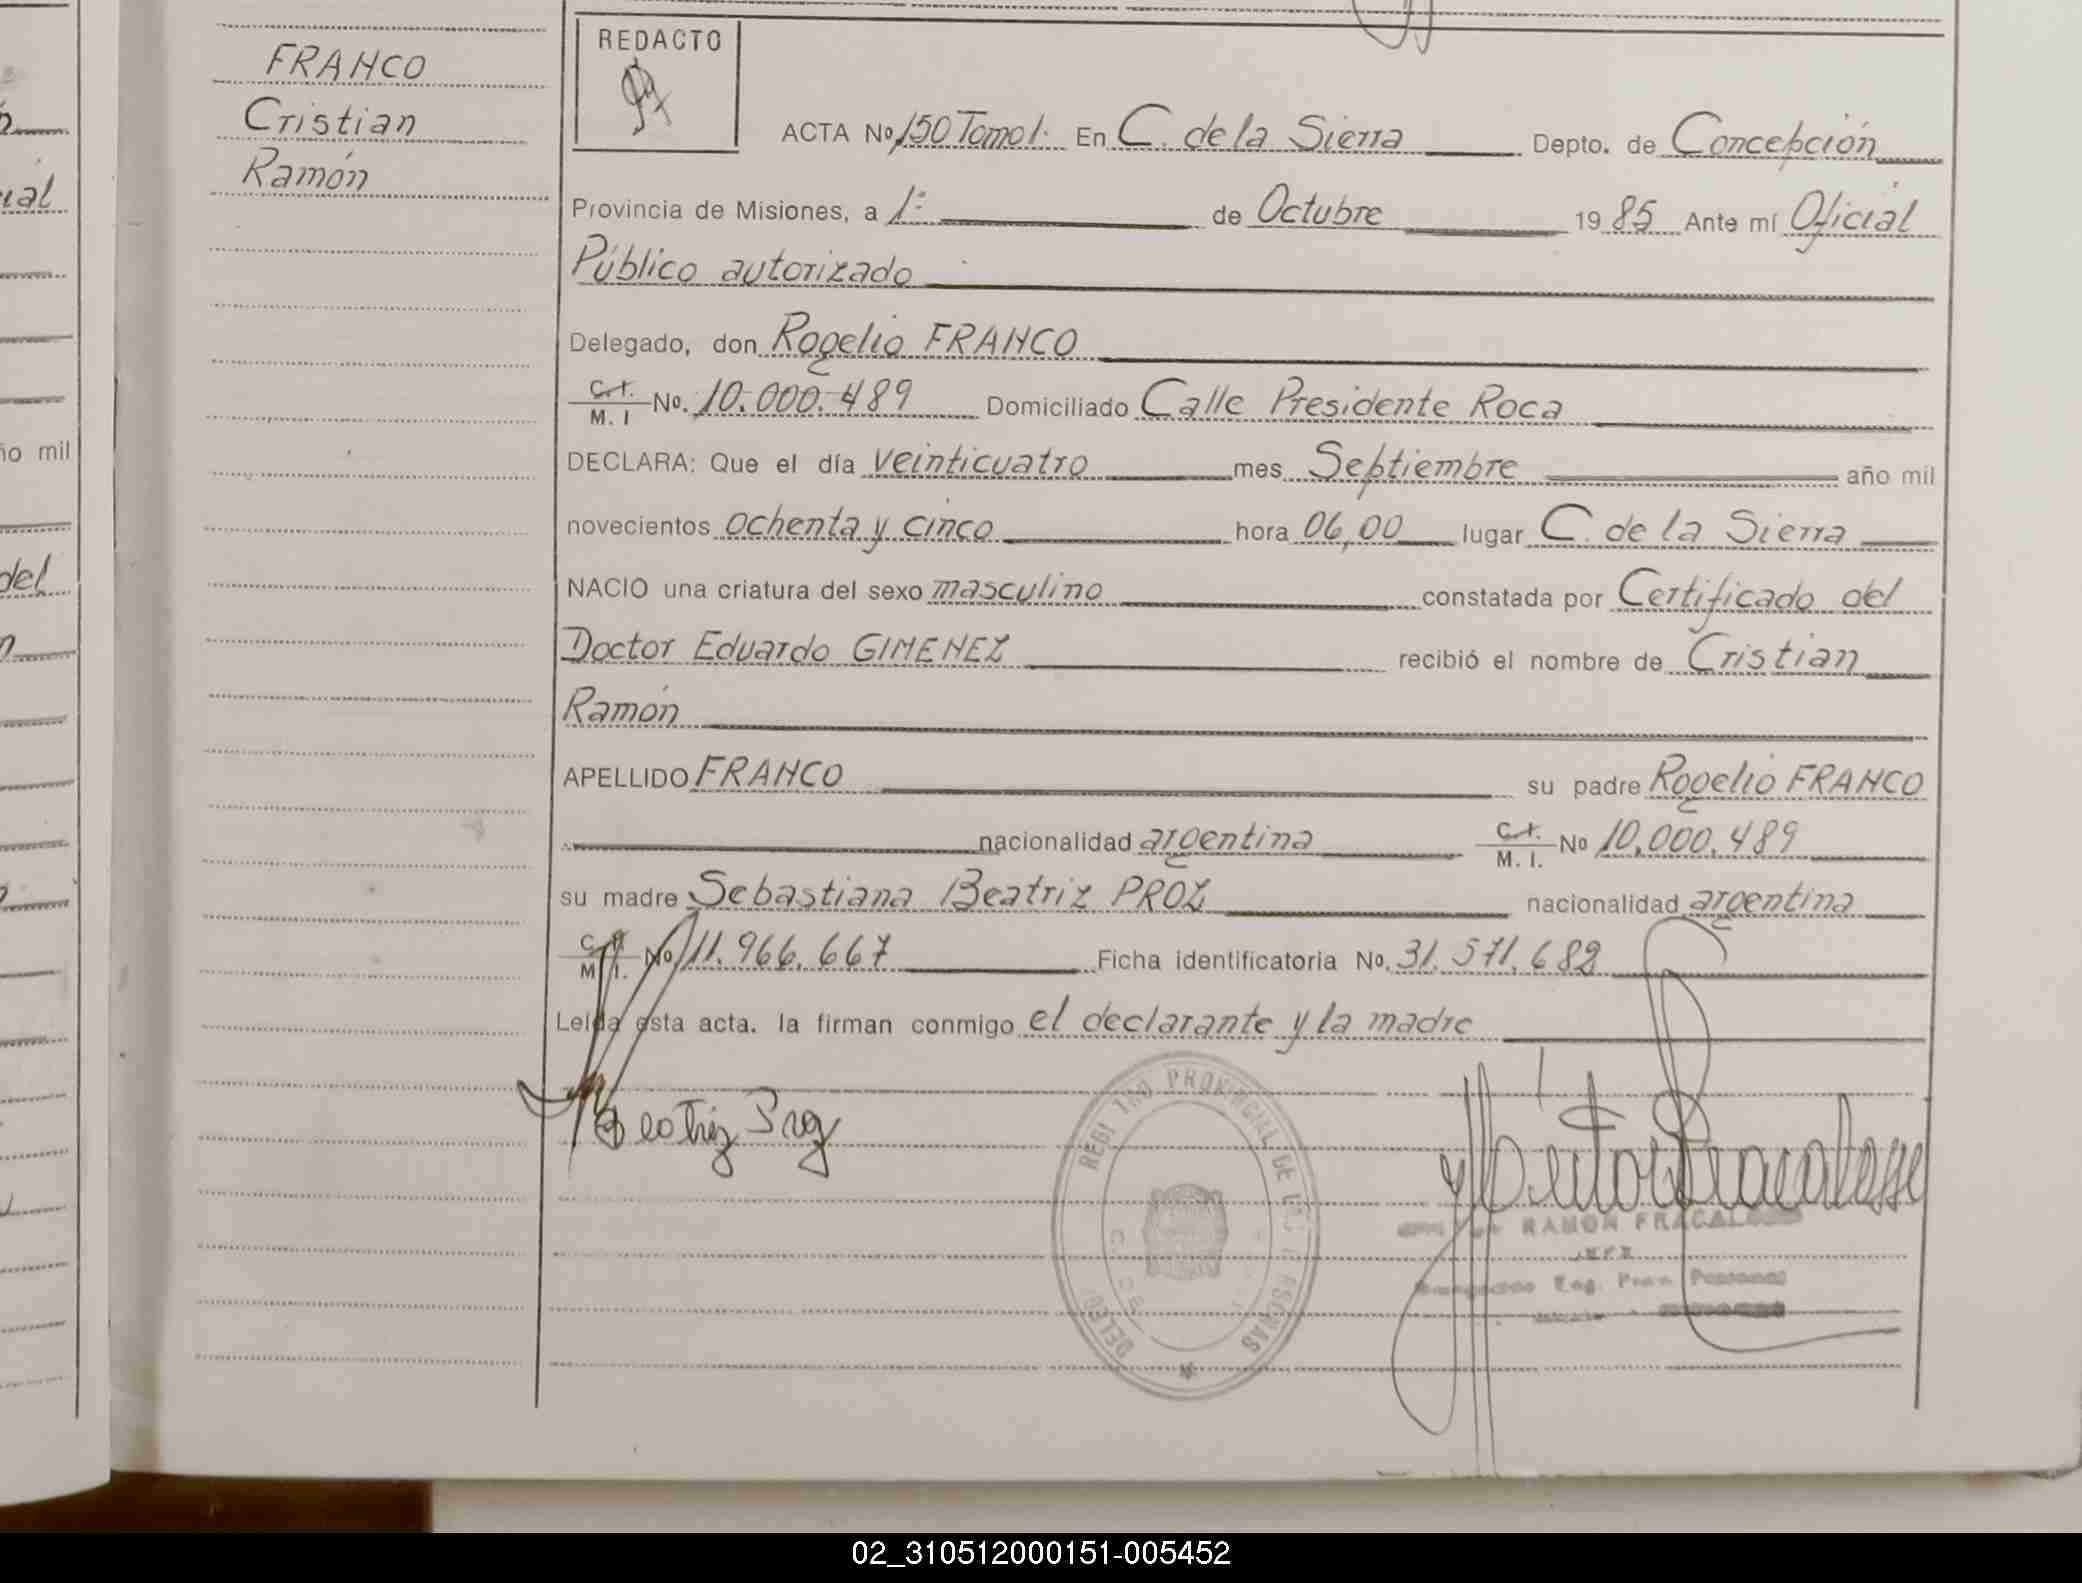 FRANCO
Cristian
Ramón
REDACTO
ACTA Nº 150 Tomo 1. En C. de la Sierra Depto. de Concepción
Provincia de Misiones, a 1º de Octubre 1985 Ante mí Oficial
Público autorizado
Delegado, don Rogelio FRANCO
C.I. M. I Nº. 10.000.489 Domiciliado Calle Presidente Roca
DECLARA: Que el día veinticuatro mes Septiembre año mil
novecientos ochenta y cinco hora 06,00 lugar C. de la Sierra
NACIO una criatura del sexo masculino constatada por Certificado del
Doctor Eduardo GIMENEZ recibió el nombre de Cristian
Ramón
APELLIDO FRANCO su padre Rogelio FRANCO
nacionalidad argentina C.I. M. I. Nº 10.000.489
su madre Sebastiana Beatriz PROZ nacionalidad argentina
C.I. M. I. Nº 11.966.667 Ficha identificatoria Nº. 31.571.682
Leída esta acta. la firman conmigo el declarante y la madre
Beatriz Proz
REGISTRO PROVINCIAL DE LAS PERSONAS
RAMON
io mil
del
02_310512000151-005452